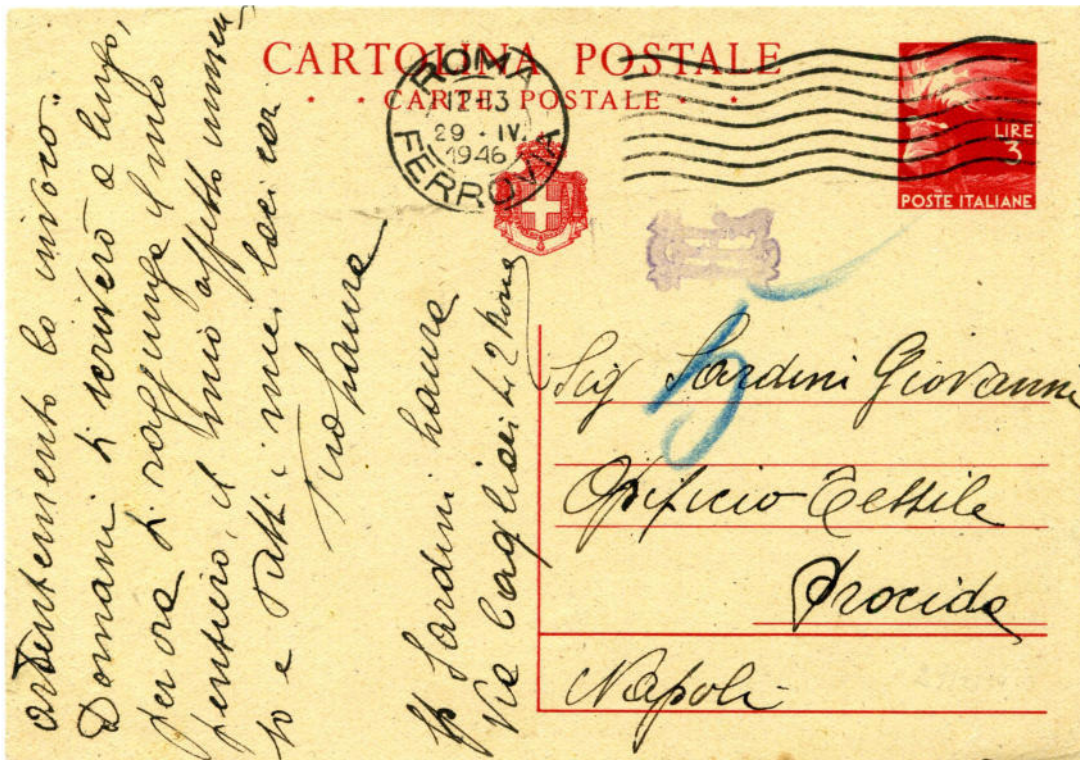 CARTOLINA POSTALE
CARTE POSTALE
ROMA
12-13
29 · IV.
1946
FERROVIA
LIRE
3
POSTE ITALIANE
ardentemente lo invoco"
Domani ti scriverò a lungo,
per ora ti raggiunga il mio
pensiero, il mio affetto immen
so e tutti i miei baci cari
Tua Laura
Sp Sardini Laura
Via Cagliari 42 Roma
Sig Sardini Giovanni
Opificio Tessile
Procida
Napoli